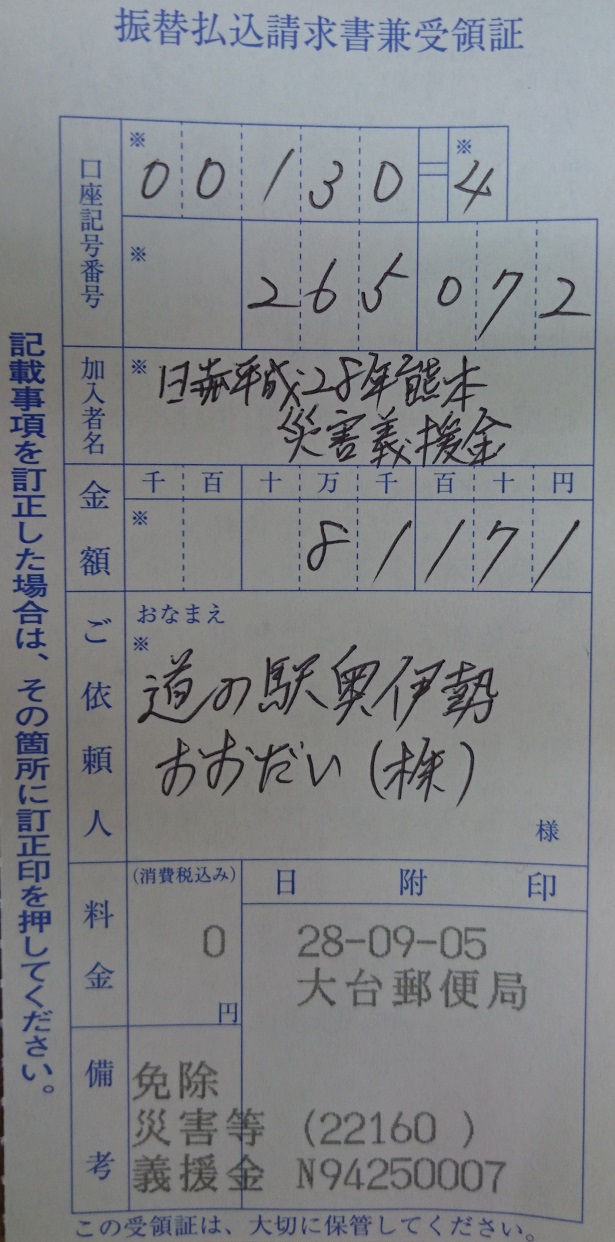 振替払込請求書兼受領証
口座記号番号
※
00130
※
4
※
265072
加入者名
※
日赤平成28年熊本
災害義援金
金額
千 百 十 万 千 百 十 円
※
81171
ご依頼人
おなまえ
※
道の駅奥伊勢
おおだい(株)
様
料金
(消費税込み)
0
円
日附印
28-09-05
大台郵便局
備考
免除
災害等 (22160 )
義援金 N94250007
記載事項を訂正した場合は、その箇所に訂正印を押してください。
この受領証は、大切に保管してください。